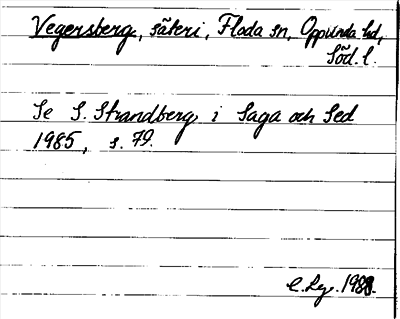 Vegersberg, säteri, Floda sn, Oppunda hd,
Söd. l.
Se S. Strandberg i Saga och Sed
1985, s. 79.
C. Lg. 1988.